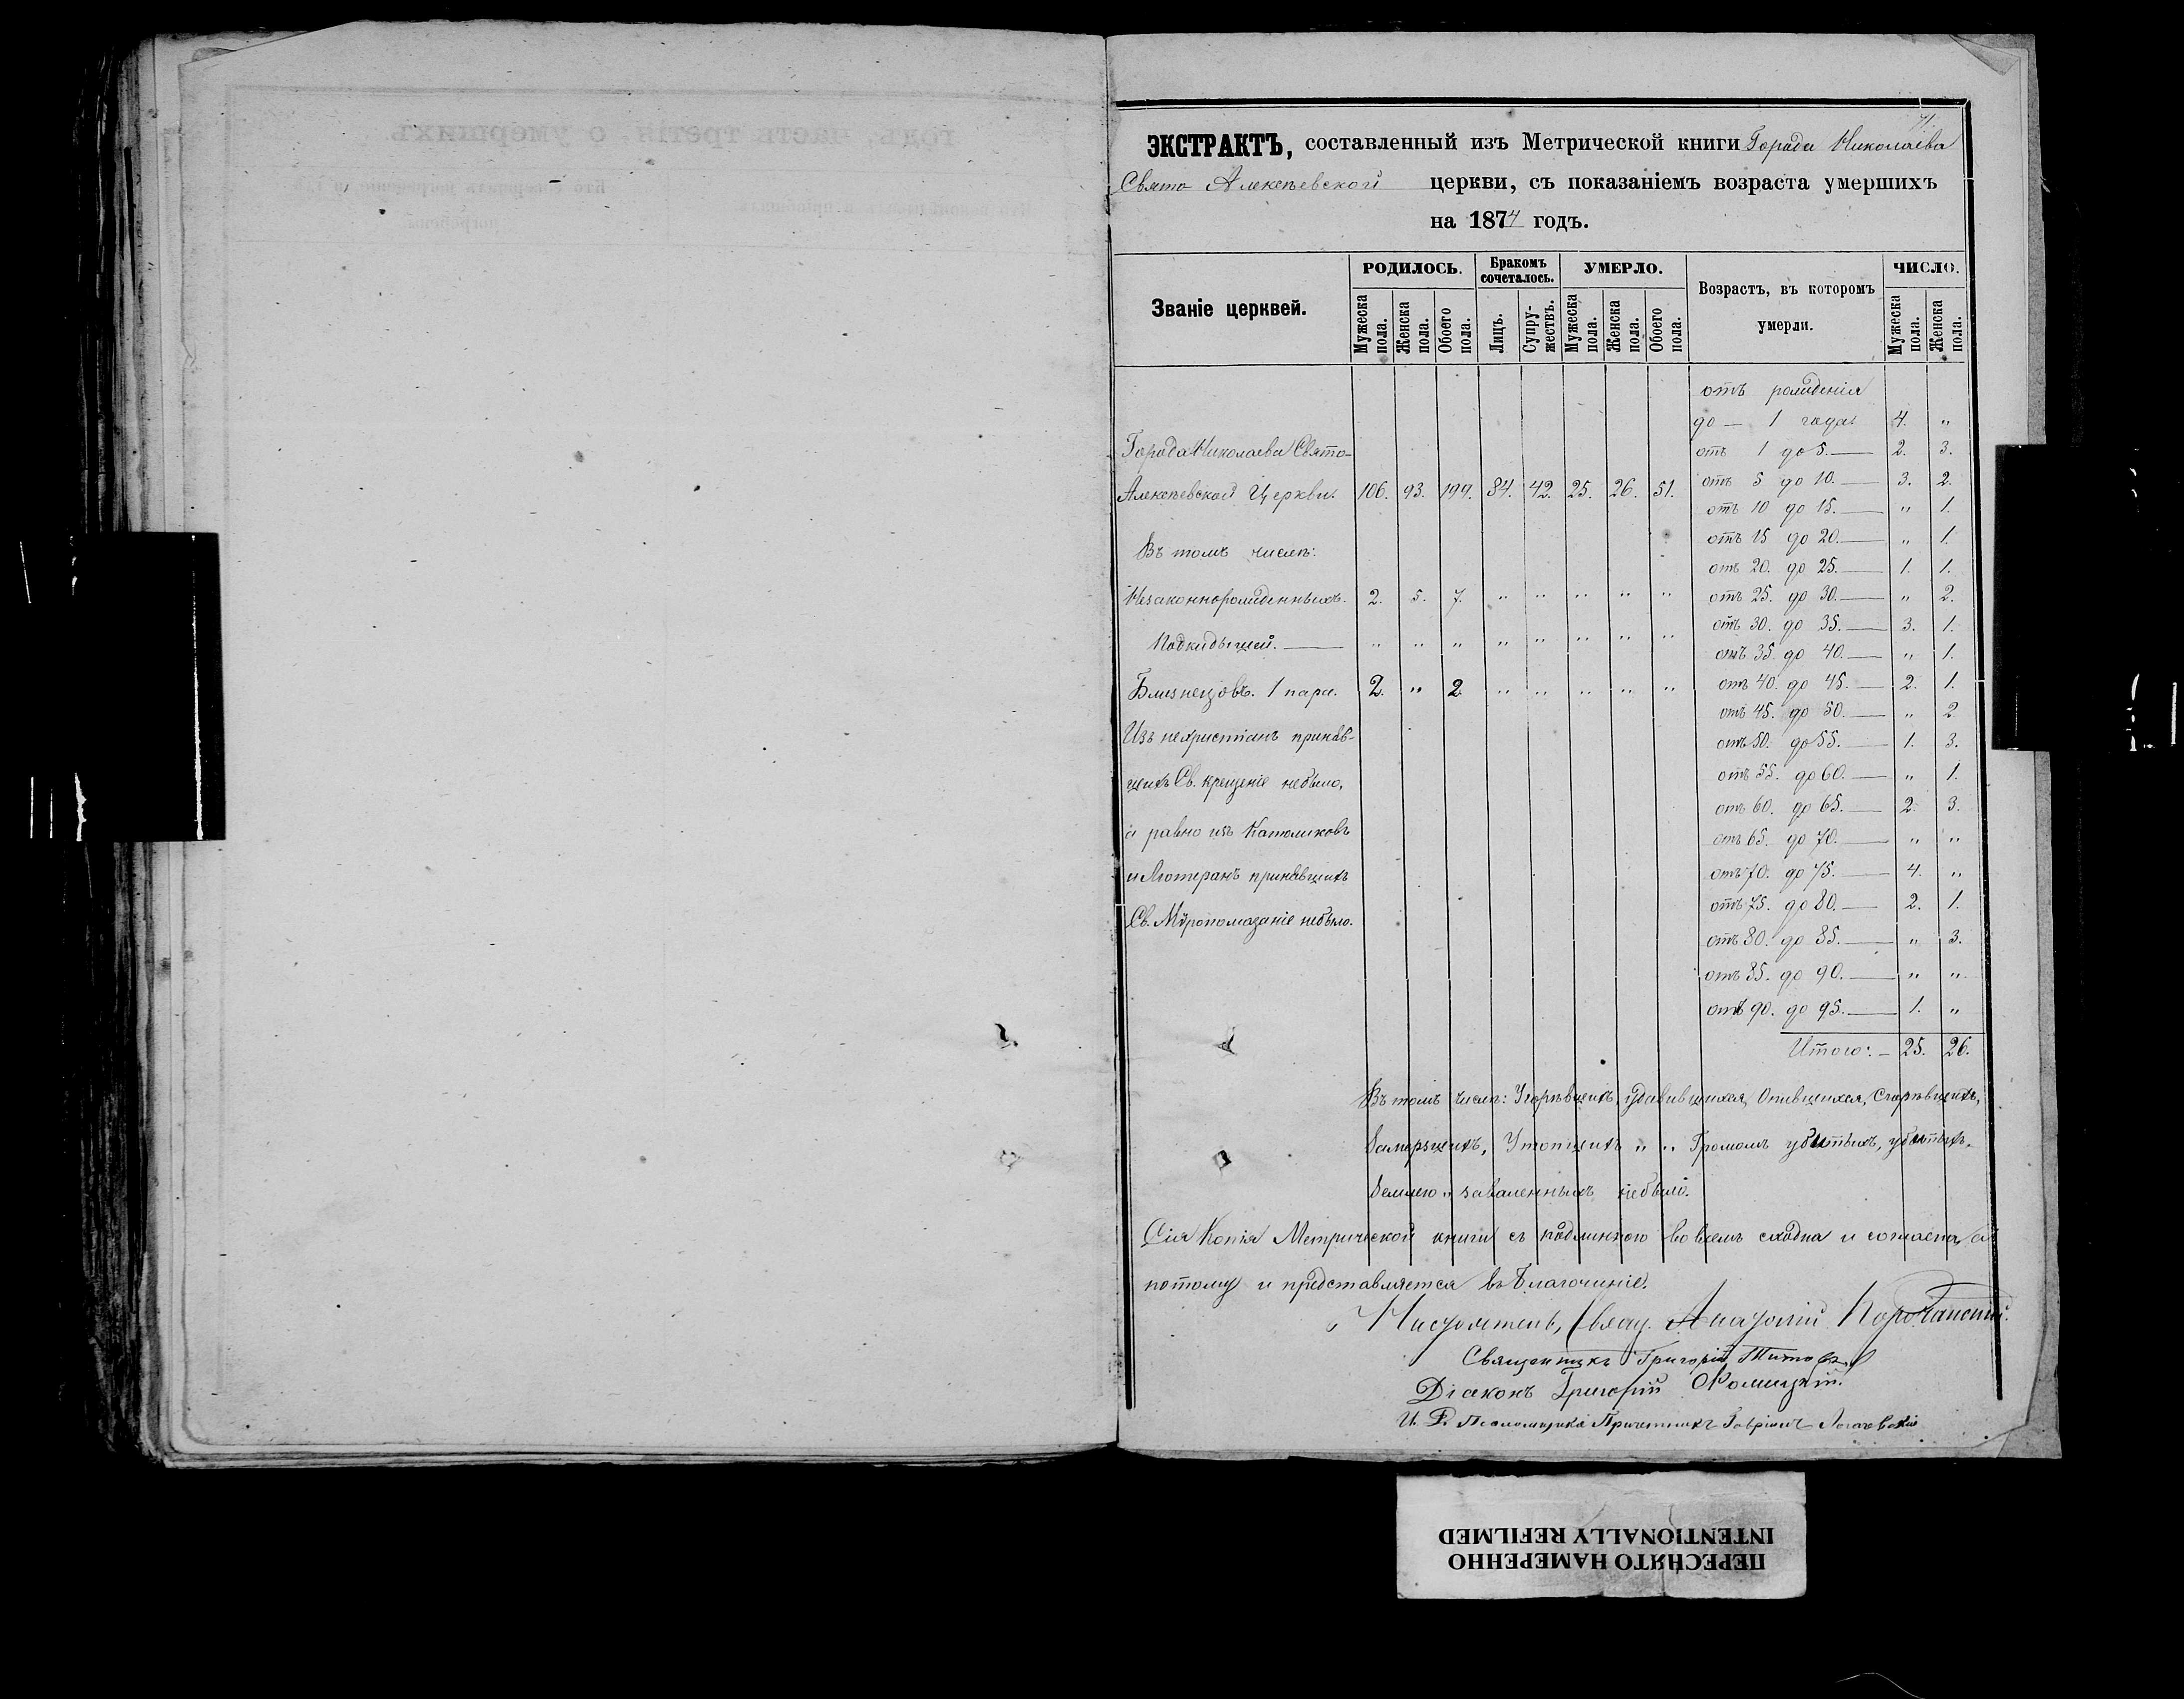 71.
ЭКСТРАКТЪ, составленный изъ Метрической книги Города Николаева
Свято Алексѣевской церкви, съ показаніемъ возраста умершихъ
на 1874 годъ.
Званіе церквей. РОДИЛОСЬ. Бракомъ сочеталось. УМЕРЛО. Возрастъ, въ которомъ умерли. ЧИСЛО.
Мужеска пола. Женска пола. Обоего пола. Лицъ. Супружествъ. Мужеска пола. Женска пола. Обоего пола. Мужеска пола. Женска пола.
Города Николаева Свято-
Алексѣевской Церкви. 106. 93. 199. 84. 42. 25. 26. 51.
Въ томъ числѣ:
Незаконнорожденныхъ. 2. 5. 7. " " " " "
Подкидышей. — " " " " " " " "
Близнецовъ. 1 пара. 2. " 2. " " " " "
Изъ нехристіанъ приняв-
шихъ Св. крещеніе небыло,
а равно изъ Католиковъ
и Лютеранъ принявшихъ
Св. Мѵропомазаніе небыло.
отъ рожденія
до — 1 года. 4. "
отъ 1 до 5. — 2. 3.
отъ 5 до 10. — 3. 2.
отъ 10 до 15. — " 1.
отъ 15 до 20. — " 1.
отъ 20. до 25. — 1. 1.
отъ 25. до 30. — " 2.
отъ 30. до 35. — 3. 1.
отъ 35 до 40. — " 1.
отъ 40. до 45. — 2. 1.
отъ 45. до 50. — " 2
отъ 50. до 55. — 1. 3.
отъ 55. до 60. — " 1.
отъ 60. до 65. — 2. 3.
отъ 65. до 70. — " "
отъ 70. до 75. — 4. "
отъ 75. до 80. — 2. 1.
отъ 80. до 85. — " 3.
отъ 85. до 90. — " "
отъ 90. до 95. — 1. "
Итого: — 25. 26.
Въ томъ числѣ: Угорѣвшихъ, удавившихся, Опившихся, Сгорѣвшихъ,
Замерзшихъ, Утопшихъ " " Громомъ убитыхъ, убитыхъ.
Землею " заваленныхъ небыло.
Сія Копія Метрической книги съ подлинною во всемъ сходна и согласна, а
потому и представляется въ Благочиніе.
Настоятель, Свящ. Анатолій Корочанскій.
Священникъ Григорій Титовъ
Діаконъ Григорій
И. Д. Псаломщика Причетникъ Гавріилъ
годъ, часть третія, о умершихъ
ПЕРЕСНЯТО НАМЕРЕННО
INTENTIONALLY REFILMED